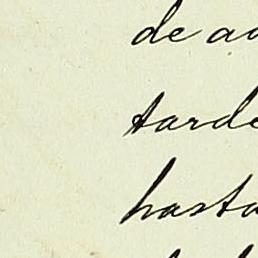 de a
tarde
hasta